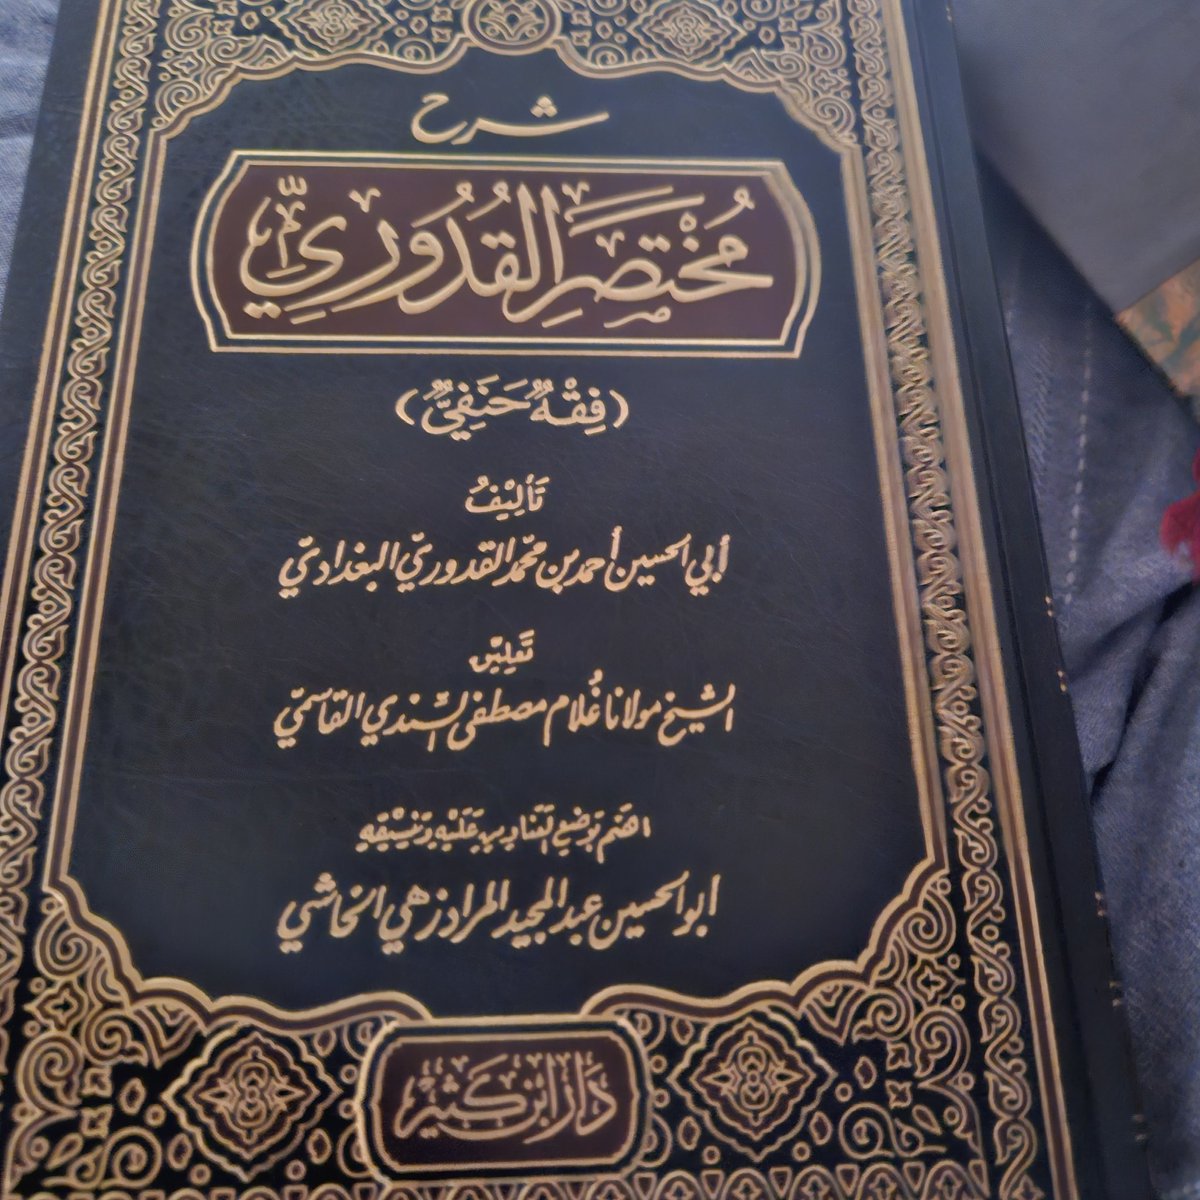 شرح
مُخْتَصَرُ القُدُورِيِّ
(فِقْهٌ حَنَفِيٌّ)
تَأْلِيْفُ
أبي الحسين أحمد بن محمّد القدوريّ البغداديّ
تَعليق
الشيخ مولانا غُلام مصطفى السّندي القاسميّ
اهتم بوضع العناوين عَلَيْهِ وَتنسِيْقِهِ
ابو الحسين عبد المجيد المرادزهي الخاشي
دَارُ ابْن كَثير